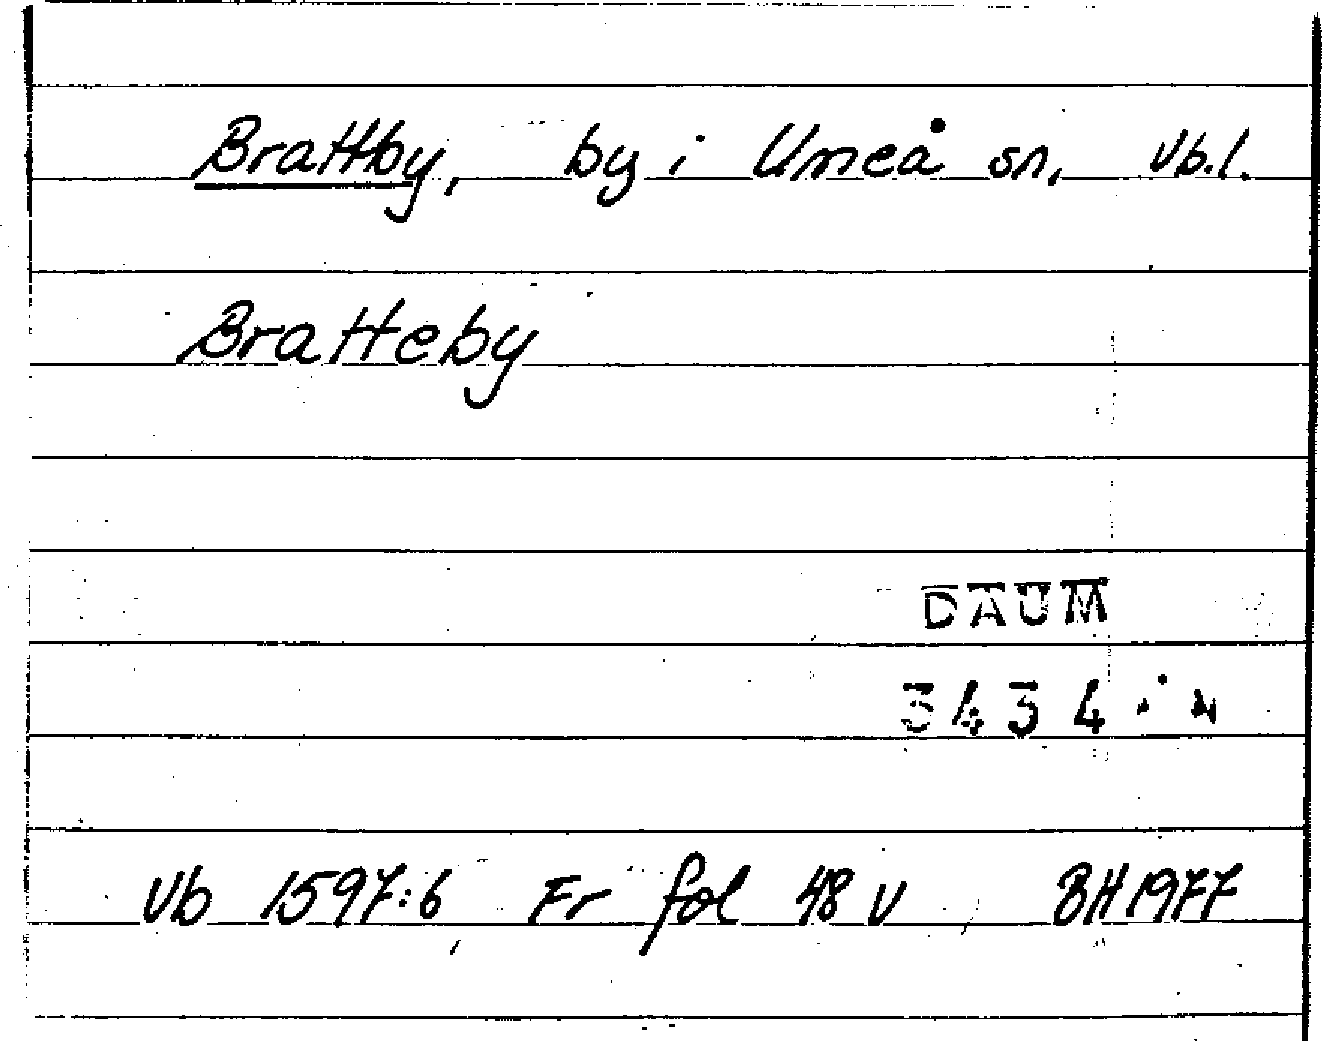 Brattby, by i Umeå sn, Vb.l.
Bratteby
DAUM
3434
Vb 1597:6, Fr fol 48 v, BH 1977